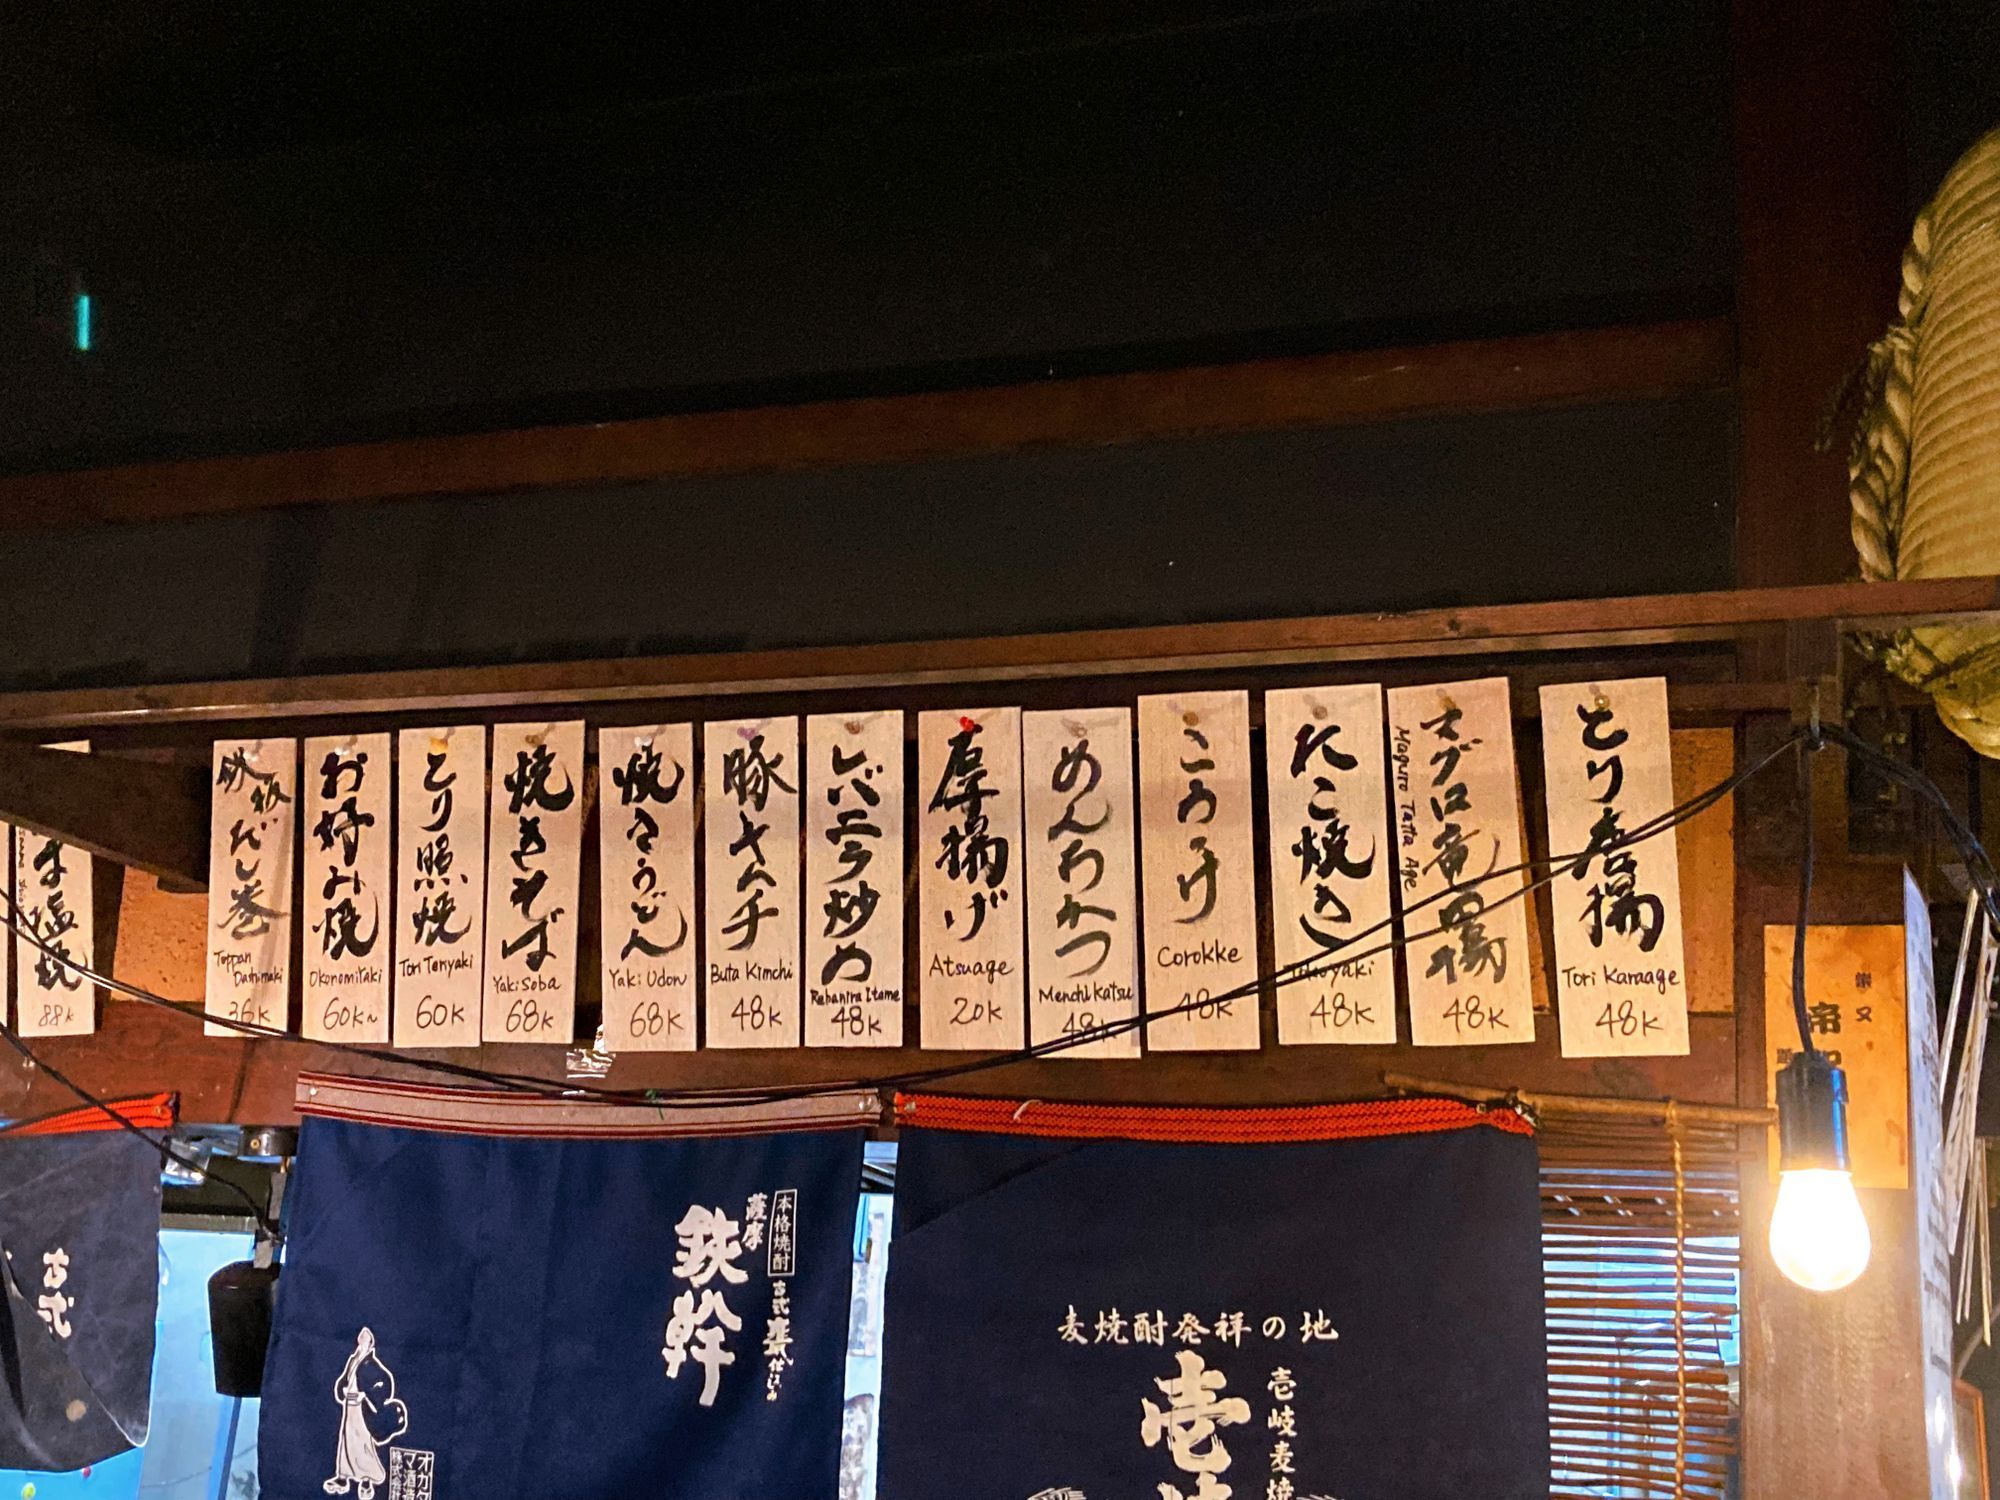 ま塩焼
88K
鉄板だし巻
Teppan
Dashimaki
36K
お好み焼
Okonomiyaki
60K~
とり照焼
Tori Teriyaki
60K
焼きそば
Yaki Soba
68K
焼きうどん
Yaki Udon
68K
豚キムチ
Buta Kimchi
48K
レバニラ炒め
Rebanira Itame
48K
厚揚げ
Atsuage
20K
めんちかつ
Menchi Katsu
48K
ころっけ
Corokke
48K
たこ焼き
Takoyaki
48K
マグロ竜田揚
Maguro Tatta Age
48K
とり唐揚
Tori Karaage
48K
古式
本格焼酎
薩摩
鉄幹
古式甕仕込み
オガタ
マ酒造
株式会社
麦焼酎発祥の地
壱岐
壱岐麦焼